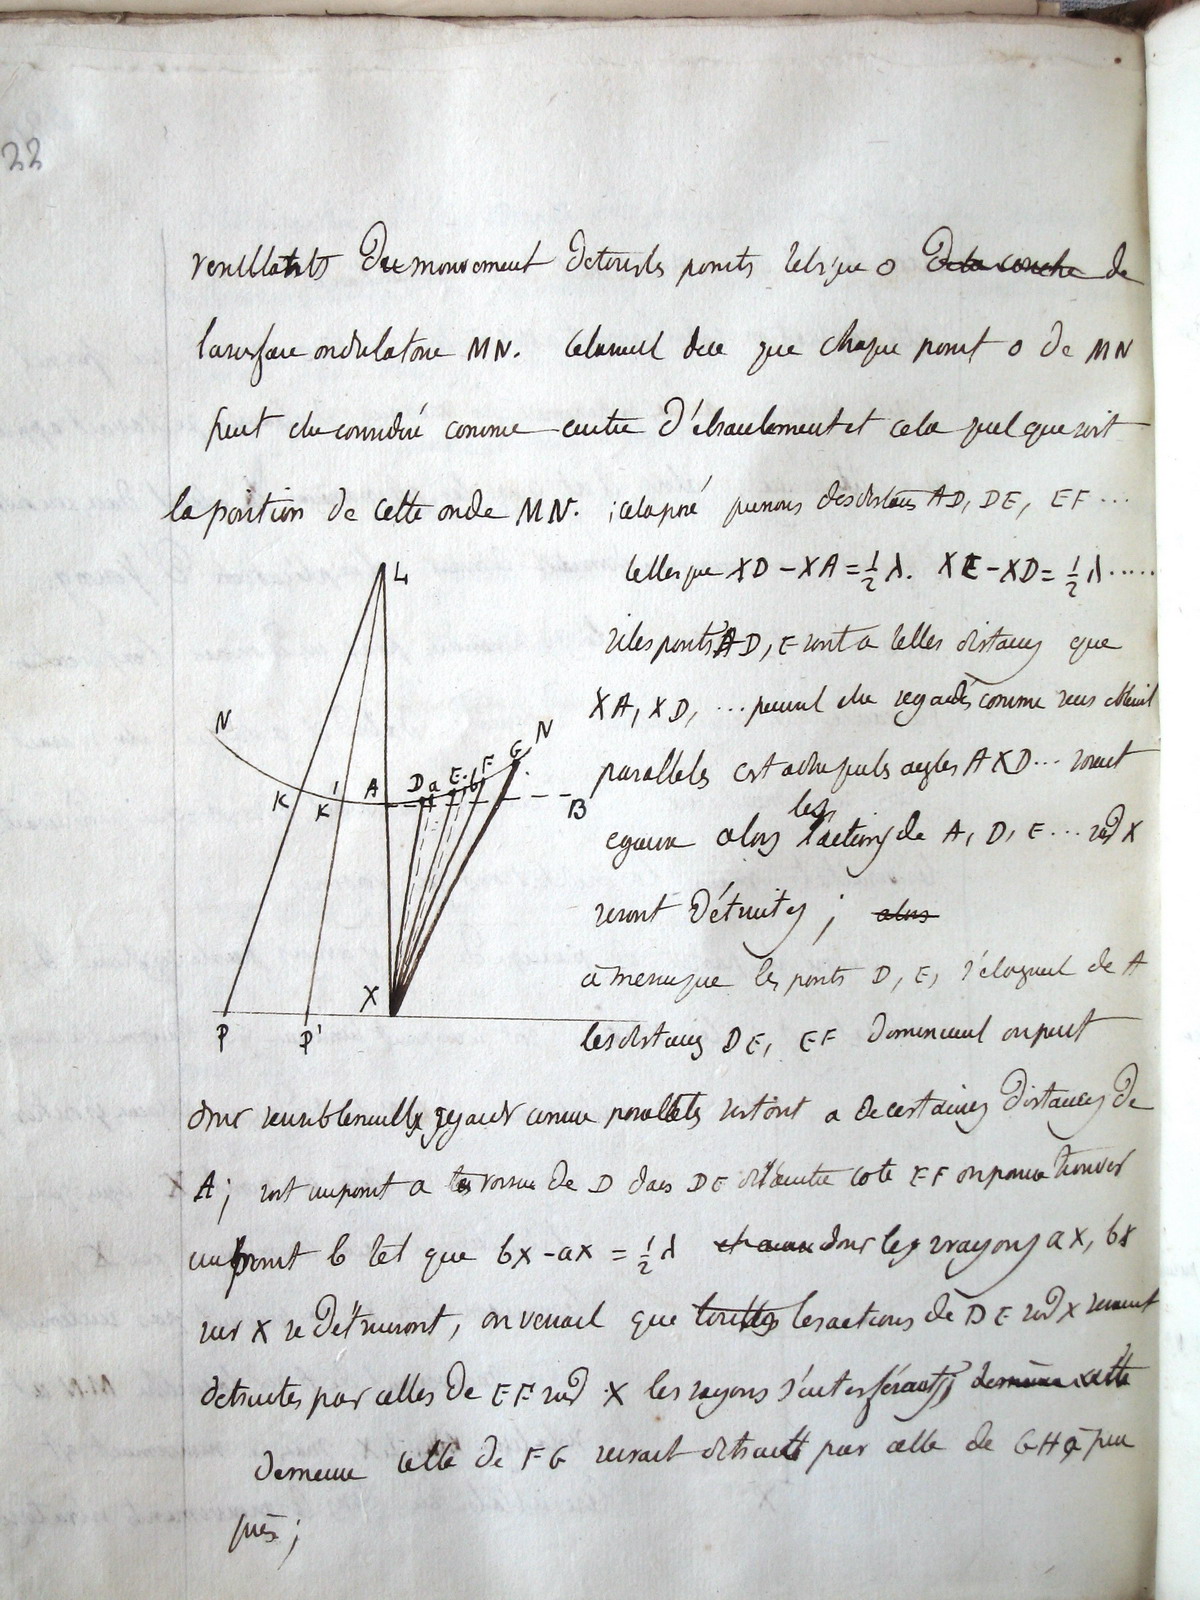 22
resultants du mouvement de tous les points tels que o de la couche de
la surface ondulatoire MN. cela veut dire que chaque point o de MN
peut etre consideré comme centre d'ébranlement et cela quel que soit
la position de cette onde MN. ; cela posé prenons des distances AD, DE, EF ...
telles que XD - XA = 1/2 λ. XE - XD = 1/2 λ .....
si les points A D, E sont a telles distances que
XA, XD, ... peuvent etre regardés comme sensiblement
paralleles c'est a dire que les angles AXD ... soient
egaux alors les actions de A, D, E ... sur X
seront détruites ; alors
a mesure que les points D, E, s'eloignent de A
les distances DE, EF diminuent on peut
donc sensiblement les regarder comme paralleles a de certaines distances de
A ; soit un point a de D dans DE de l'autre coté EF on pourra trouver
un point b tel que bx - ax = 1/2 λ donc les rayons ax, bx
sur X se détruiront, on verrait que toutes les actions de DE sur X seraient
detruites par celles de EF sur X les rayons s'interférants ; de meme cette
de meme celle de FG serait detruite par celle de GH a peu
près ;
L
N
K
K'
A
D
a
E
b
F
G
N
B
X
P
P'